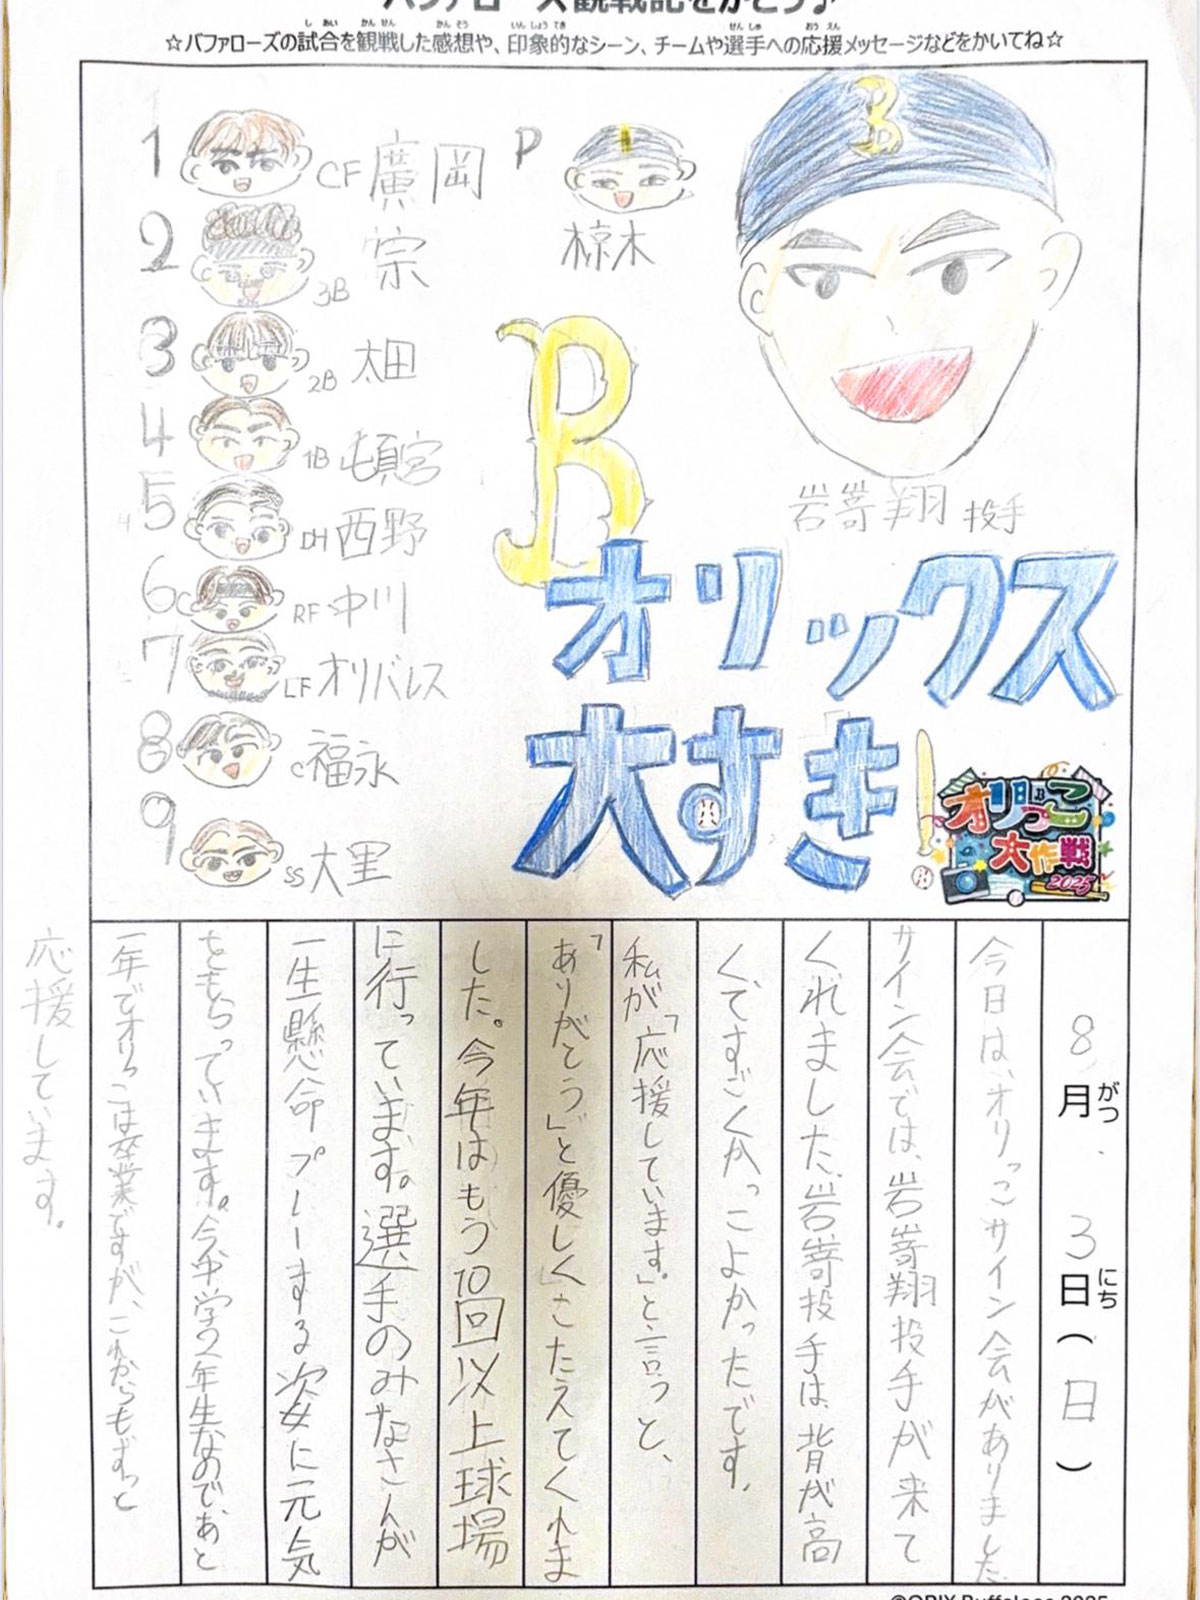 バファローズ観戦記をかこう♪
☆バファローズの試合を観戦した感想や、印象的なシーン、チームや選手への応援メッセージなどをかいてね☆
1 CF 廣岡
2 3B 宗
3 2B 太田
4 1B 頓宮
5 DH 西野
6 RF 中川
7 LF オリバレス
8 C 福永
9 SS 大里
P
椋木
B
岩嵜翔 投手
B
オリックス
大すき!
オリっこ
大作戦
2025
8月3日(日)
今日は、オリっこサイン会がありました。
サイン会では、岩嵜翔投手が来て
くれました。岩嵜投手は、背が高
くてすごくかっこよかったです。
私が「応援しています。」と言うと、
「ありがとう」と優しくこたえてくれま
した。今年はもう10回以上球場
に行っています。選手のみなさんが
一生懸命プレーする姿に元気
をもらっています。今中学2年生なので、あと
一年でオリっこは卒業ですが、これからもずっと
応援しています。
©ORIX Buffaloes 2025